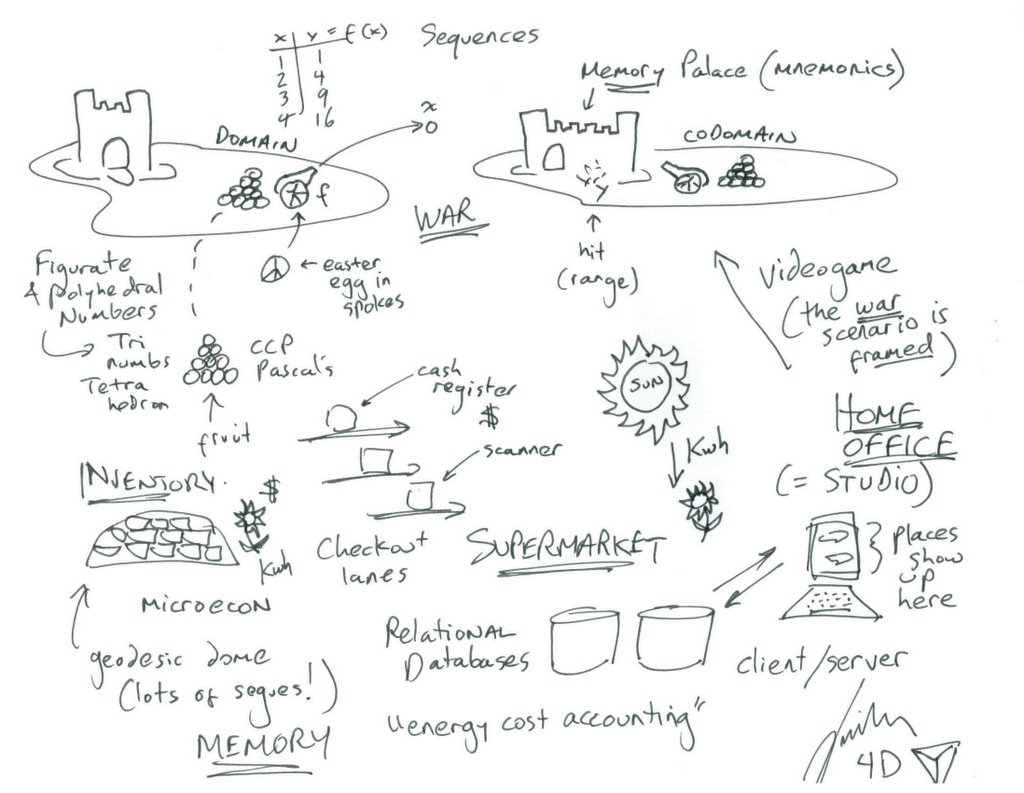 x | y = f(x)
1 | 1
2 | 4
3 | 9
4 | 16
Sequences
Memory Palace (MNEMONICS)
DOMAIN
x
o
CODOMAIN
f
WAR
hit
(range)
easter
egg in
spokes
Figurate
& Polyhedral
Numbers
Tri
numbs
Tetra
hedron
CCP
Pascal's
fruit
Videogame
(the war
scenario is
framed)
cash
register
$
scanner
SUN
Kwh
HOME
OFFICE
(= STUDIO)
INVENTORY.
$
Kwh
Checkout
lanes
SUPERMARKET
places
show
up
here
MICROECON
geodesic dome
(lots of segues!)
MEMORY
Relational
Databases
client/server
"energy cost accounting"
4D